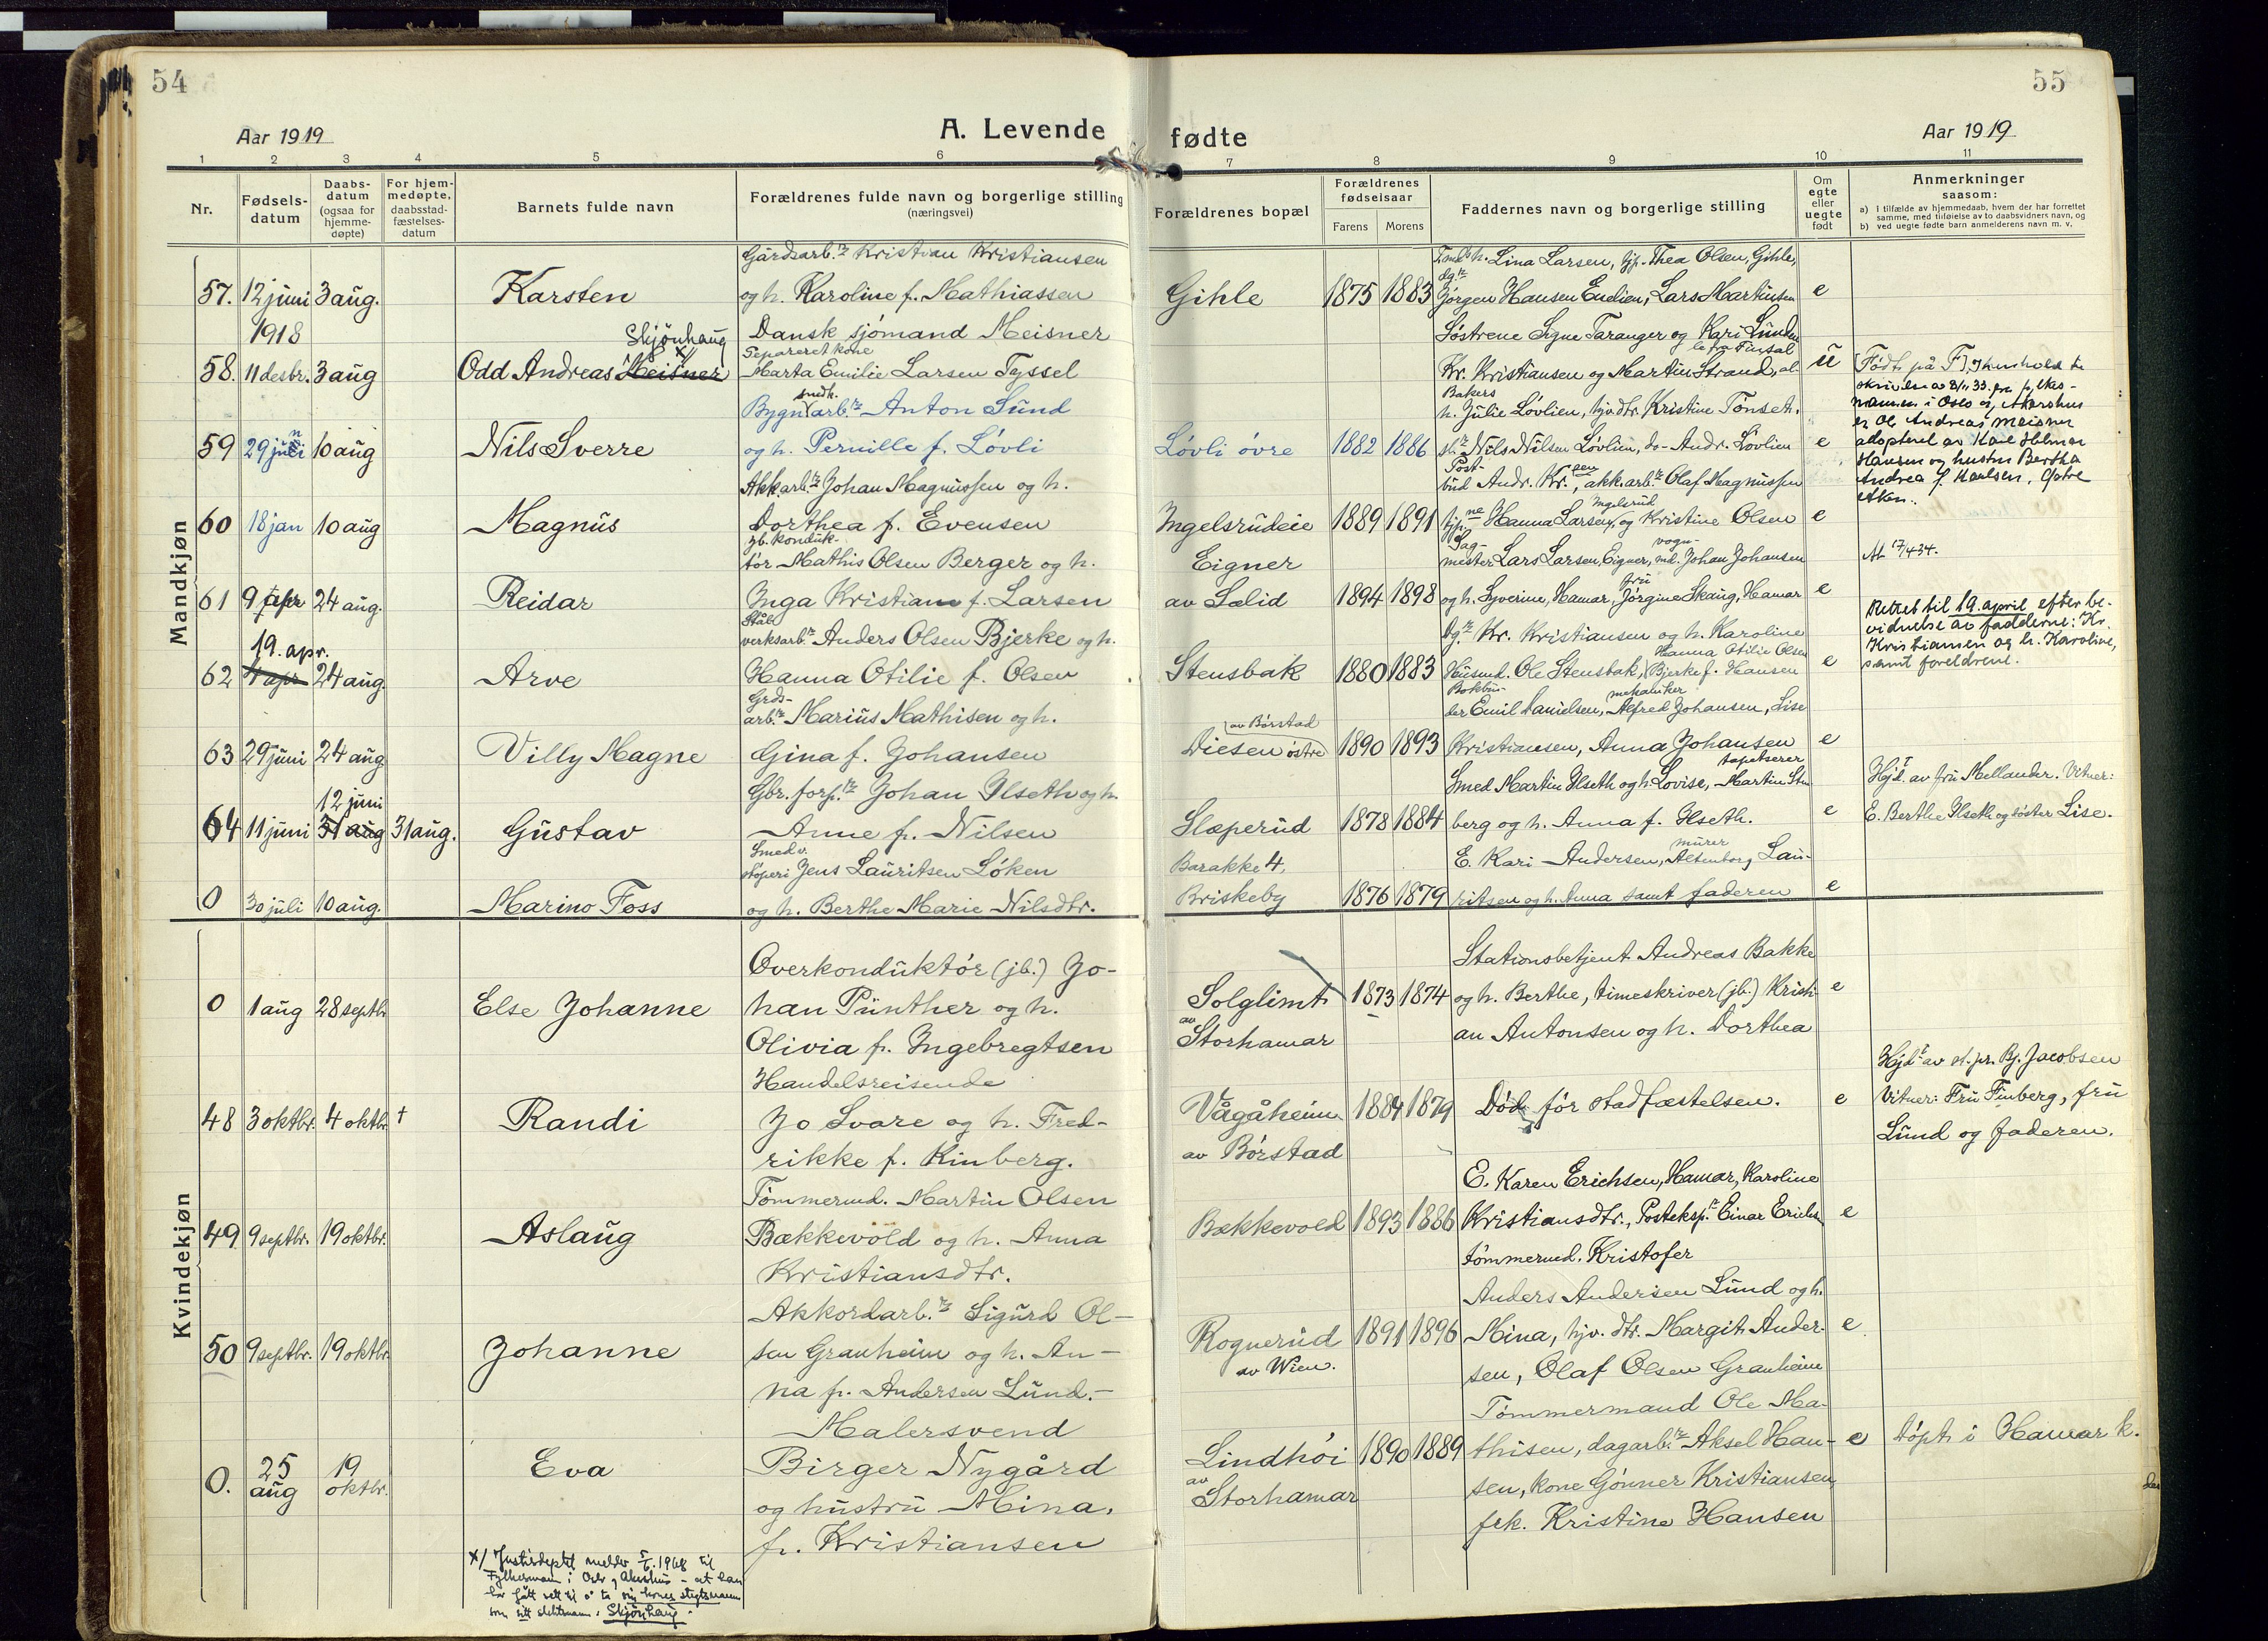 54
55
Aar 1919
A. Levende
fødte
Aar 1919
1 2 3 4 5 6 7 8 9 10 11
Nr.
Fødsels-
datum
Daabs-
datum
(ogsaa for
hjemme-
døpte)
For hjem-
medøpte,
daabsstad-
fæstelses-
datum
Barnets fulde navn
Forældrenes fulde navn og borgerlige stilling
(næringsvei)
Forældrenes bopæl
Forældrenes
fødselsaar
Farens Morens
Faddernes navn og borgerlige stilling
Om
egte
eller
uegte
født
Anmerkninger
saasom:
a) i tilfælde av hjemmedaab, hvem der har forrettet
samme, med tilføielse av to daabsvidners navn, og
b) ved uegte fødte barn anmelderens navn m. v.
Mandkjøn
Gårdsarb.r Kristian Kristiansen
57. 12 juni 3 aug. Karsten og h. Karoline f. Mathiassen
Gihle 1875 1883 Jörgen Hansen Evelien, Lars Martinsen e
h. Lina Larsen, tjp. Thea Olsen, Gihle,
1918
Skjönhaug x/
Dansk sjömand Meisner
Separeret kone
58. 11 desbr. 3 aug Odd Andreas Meisner Marta Emilie Larsen Tyssel
Söstrene Signe Taranger og Kari Lunden
Kr. Kristiansen og Martin Strand, u
Födt på F
skrivelse av 8/11 33 fra fylkes-
mannen i Oslo og Akershus
er Odd Andreas Meisner
adoptert av Karl Helmer
Hansen og hustru Bertha
Andrea f. Karlsen, Östre
Aker.
Bygn. snedk. arb.r Anton Lund
59 29 juni 10 aug Nils Sverre og h. Pernille f. Lövli
Bakers
h. Julie Lövlien, hjv. dtr. Kristine Tönset.
Lövli övre 1882 1886 Nils Nilsen Lövlien, do- Andr. Lövlien e
Akk.arb.r Johan Magnussen og h.
60 18 jan 10 aug Magnus Dorthea f. Evensen
Post-
bud Andr. Kr.sen, akk.arb.r Olaf Magnussen
Ingelsrud
Ingelsrudeie 1889 1891 tjp.ne Hanna Larsen, og Kristine Olsen e
jb. konduk-
tör Mathis Olsen Berger og h.
61 9 apr 24 aug. Reidar Inga Kristiane f. Larsen
Sag-
mester Lars Larsen, Eigner, vogn-
md. Johan Johansen
Eigner
av Sælid 1894 1898 og h. Syverine, Hamar, fru Jörgine Skaug, Hamar e
At. 17/4 34.
Stål-
verksarb.r Anders Olsen Bjerke og h.
19. apr.
62 4 apr 24 aug. Arve Hanna Otilie f. Olsen
Dg.r Kr. Kristiansen og h. Karoline
Hanna Otilie Olsen
Stensbak 1880 1883 Husmd. Ole Stensbak, Bjerke f. Hansen e
Rettet til 19. april efter be-
vidnelse av fadderne: Kr.
Kristiansen og h. Karoline,
samt foreldrene.
Grds-
arb.r Marius Mathisen og h.
63 29 juni 24 aug. Villy Magne Gina f. Johansen
Bokbin-
der Emil Danielsen, mekaniker Alfred Johansen, Lise
av Börstad
Diesen östre 1890 1893 Kristiansen, Anna Johansen e
Gbr. forp.r Johan Ilseth og h.
12 juni
64 11 juni 31 aug 31 aug. Gustav Anne f. Nilsen
tapetserer
Smed Martin Ilseth og h. Lovise, Martin Sten
Slæperud 1878 1884 berg og h. Anna f. Ilseth. e
Hjd.t av fru Mellander. Vitner:
E. Berthe Ilseth og söster Lise.
Smed v.
stöperi Jens Lauritsen Löken
0 30 juli 10 aug. Marino Foss og h. Berthe Marie Nilsdtr.
murer
E. Kari Andersen, Altenborg Lau-
Barakke 4,
Briskeby 1876 1879 ritsen og h. Anna samt faderen e
Kvindekjøn
Overkonduktör (jb.) Jo-
0 1 aug 28 septbr Else Johanne han Pünther og h.
Olivia f. Ingebregtsen
Stationsbetjent Andreas Bakke
Solglimt 1873 1874 og h. Berthe, timeskriver (jb.) Kristi- e
av
Storhamar an Antonsen og h. Dorthea
Handelsreisende
48 3 oktbr. 4 oktbr. † Randi Jo Svare og h. Fred-
rikke f. Kinberg.
Vågåheim 1884 1879 Död för stadfæstelsen. e
av Börstad
Hjd.t av st. pr. Bj. Jacobsen
Vitner: Fru Finberg, fru
Lund og faderen.
Tömmermd. Martin Olsen
49 9 septbr. 19 oktbr. Aslaug Bækkevold og h. Anna
Kristiansdtr.
E. Karen Erichsen, Hamar, Karoline
Bækkevold 1893 1886 Kristiansdtr., Posteksp.r Einar Erichs. e
tömmermd. Kristofer
Akkordarb.r Sigurd Ol-
50 9 septbr. 19 oktbr. Johanne sen Granheim og h. An-
na f. Andersen Lund.-
Anders Andersen Lund og h.
Rognerud 1891 1896 Mina, hjv. dtr. Margit Ander- e
av Wien. sen, Olaf Olsen Granheim
Malersvend
0. 25 aug 19 oktbr. Eva Birger Nygård
og hustru Mina,
f. Kristiansen
Tömmermand Ole Ma-
Lindhöi 1890 1889 thisen, dagarb.r Aksel Han- e döpt i Hamar k.
av
Storhamar sen, kone Gönner Kristiansen
frk. Kristine Hansen
x/ Justisdeptet melder 5/6 1968 til
Fylkesmann i Oslo og Akershus - at han
har fått rett til å ta sin kones slektsnavn
som sitt slektsnavn: Skjönhaug.